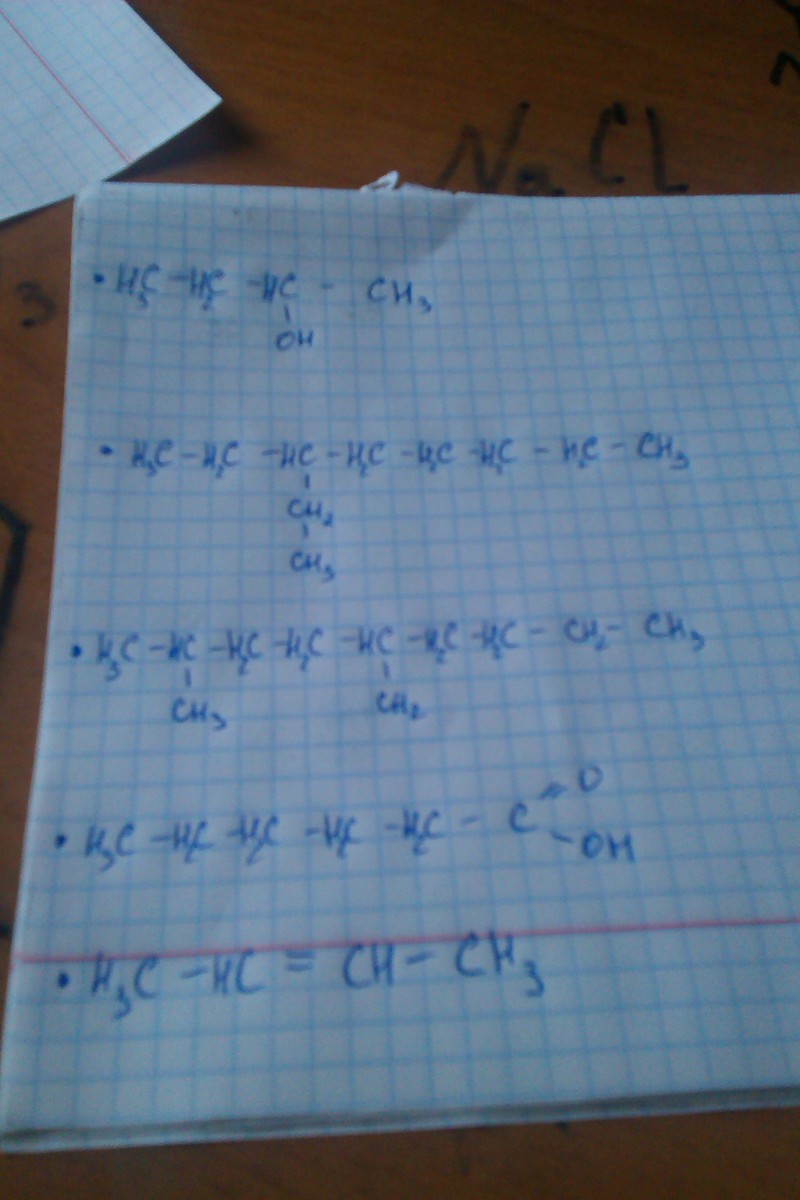 NaCl
3
• H₃C - H₂C - HC - CH₃
OH
• H₃C - H₂C - HC - H₂C - H₂C - H₂C - H₂C - CH₃
CH₂
CH₃
• H₃C - HC - H₂C - H₂C - HC - H₂C - H₂C - CH₂ - CH₃
CH₃ CH₂
• H₃C - H₂C - H₂C - H₂C - H₂C - C = O
- OH
• H₃C - HC = CH - CH₃